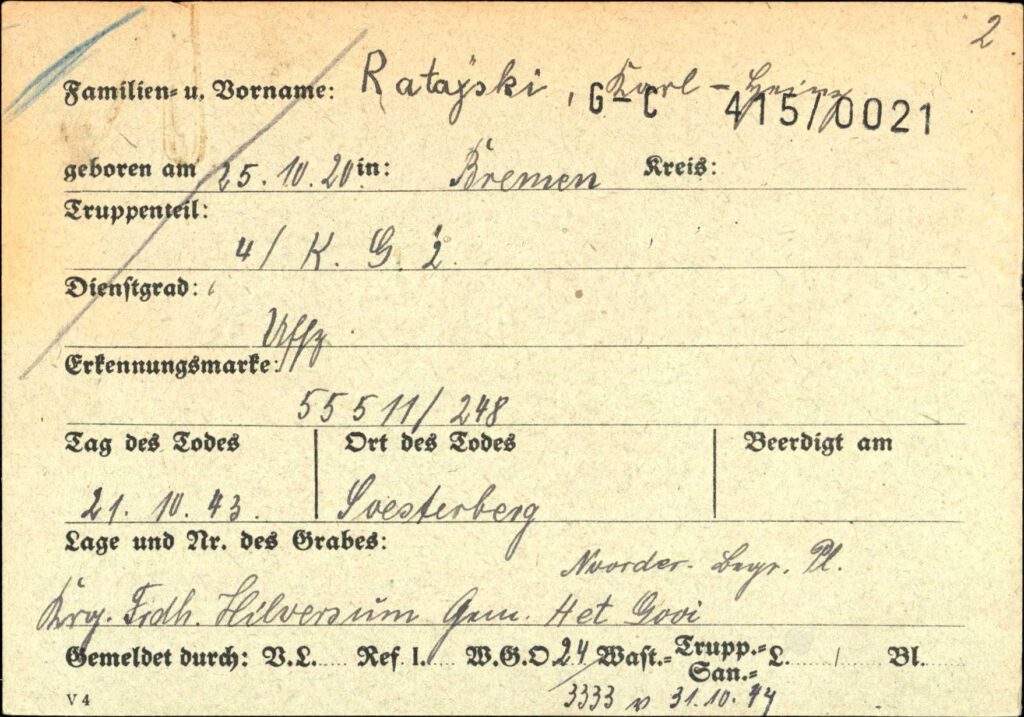 2
Familien- u. Vorname: Ratayski, Karl-Heinz
G-C 415/0021
geboren am 25.10.20 in: Bremen Kreis:
Truppenteil:
4/ K. G. 2.
Dienstgrad:
Uffz
Erkennungsmarke:
55511/248
Tag des Todes Ort des Todes Beerdigt am
21. 10. 43. Soesterberg
Lage und Nr. des Grabes:
Noorder. Begr. Pl.
Krg. Frdh. Hilversum Gem. Het Gooi
Gemeldet durch: V.L. Ref I. W.G.O 24 Wast.- Trupp.- San.- L. / Bl.
3333 v 31.10.44
V 4